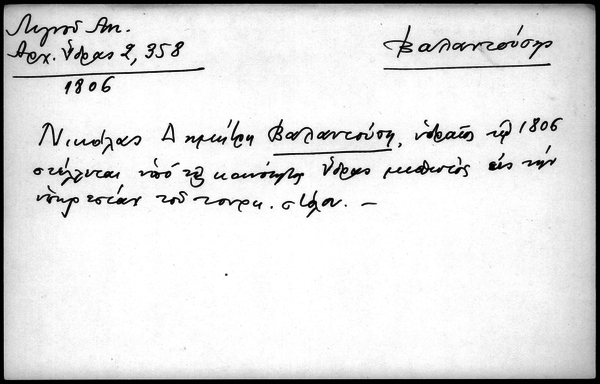 Λιγνοῦ Αντ.
Ἀρχ. Ὕδρας 2, 358
1806
Βαλαντούσης
Νικόλας Δημήτρη Βαλαντούση, ὑδραῖος τῷ 1806
στέλλεται ὑπό τῆς κοινότητος Ὕδρας μισθωτός εἰς τήν
ὑπηρεσίαν τοῦ τουρκ. στόλου. –